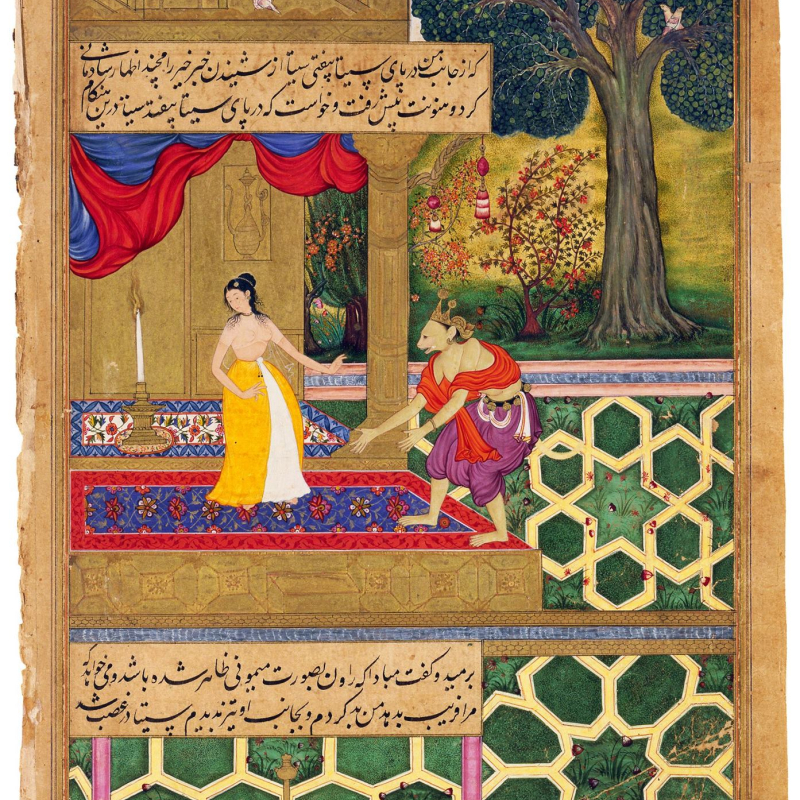 که از جانب من در پای سیتا بیفتی سیتا از شنیدن خبر خیر رامچند اظهار شادمانی
کرد و هنونت پیش رفت و خواست که در پای سیتا بیفتد سیتا درین هنگام
برمید و گفت مبادا که راون بصورت میمونی ظاهر شده باشد و می خواهد که
مرا فریب بدهد من بد کردم و بجانب او تیز ندیدم سیتا در غضب شد